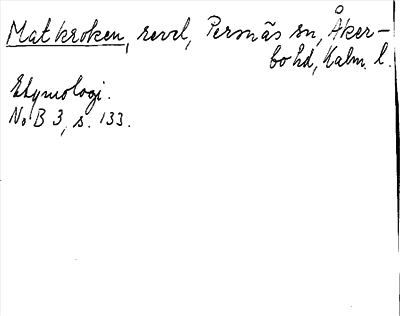 Matkroken, revl, Persnäs sn, Åker-
bo hd, Kalm. l.
Etymologi.
NoB 3, s. 133.